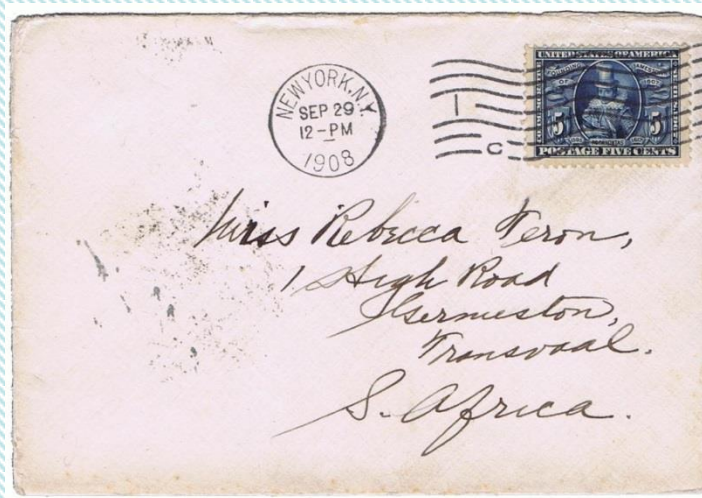 NEW YORK, N.Y.
SEP 29
12-PM
1908
C
UNITED STATES OF AMERICA
FOUNDING OF
5 5
POSTAGE FIVE CENTS
Miss Rebecca Feron,
1 High Road
Germiston,
Transvaal.
S. Africa.